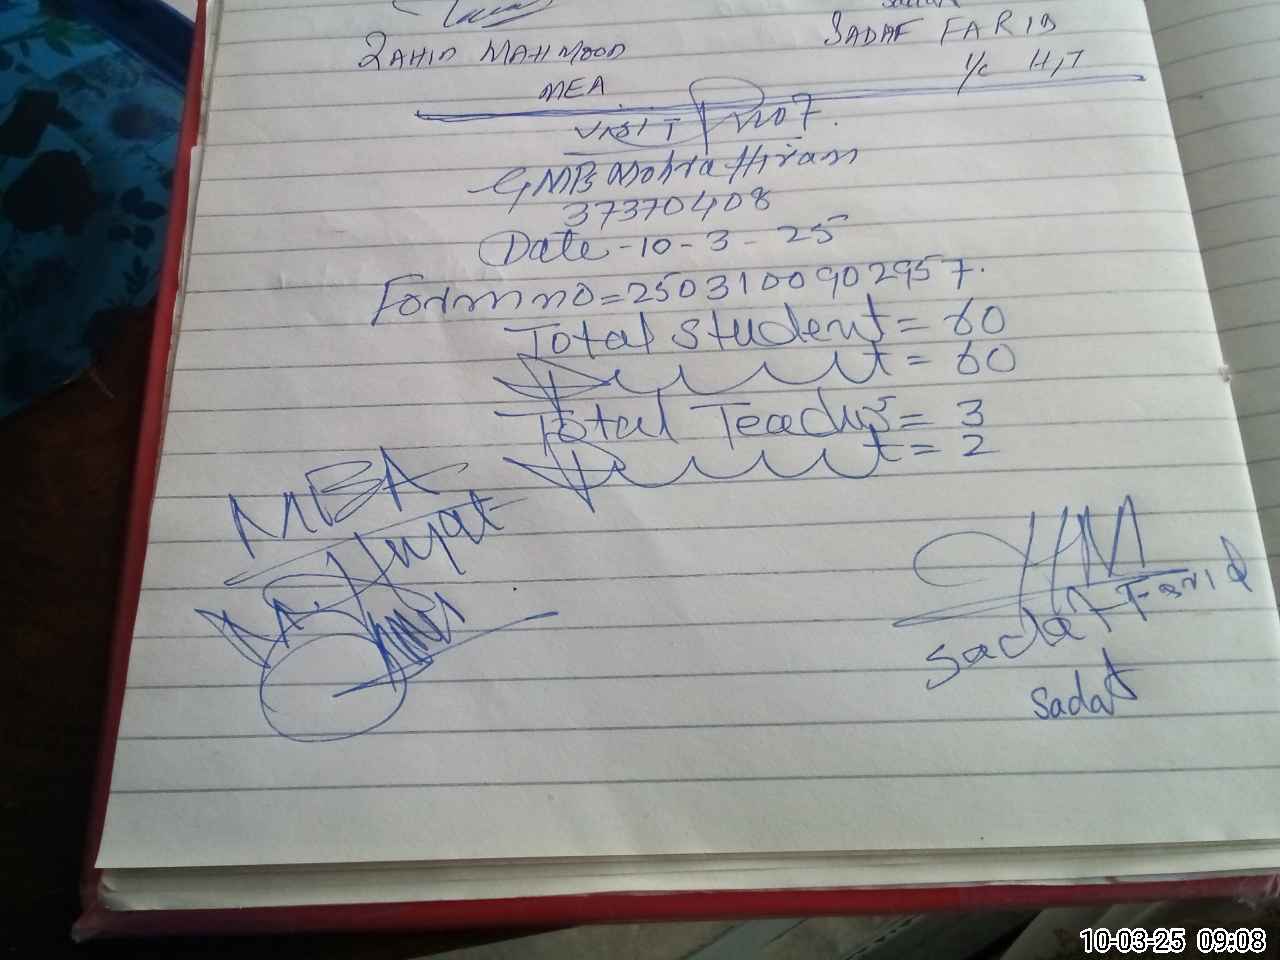 Sadaf
ZAHID MAHMOOD
SADAF FARID
MEA
I/c H,T
VISIT Proof.
GMPS Mohra Hiram
37370408
Date - 10 - 3 - 25
Form no = 2503100902957.
Total student = 60
Present = 60
Total Teachers = 3
Present = 2
MEA
HM
M. Hayat
Sadaf Farid
Sadaf
10-03-25 09:08